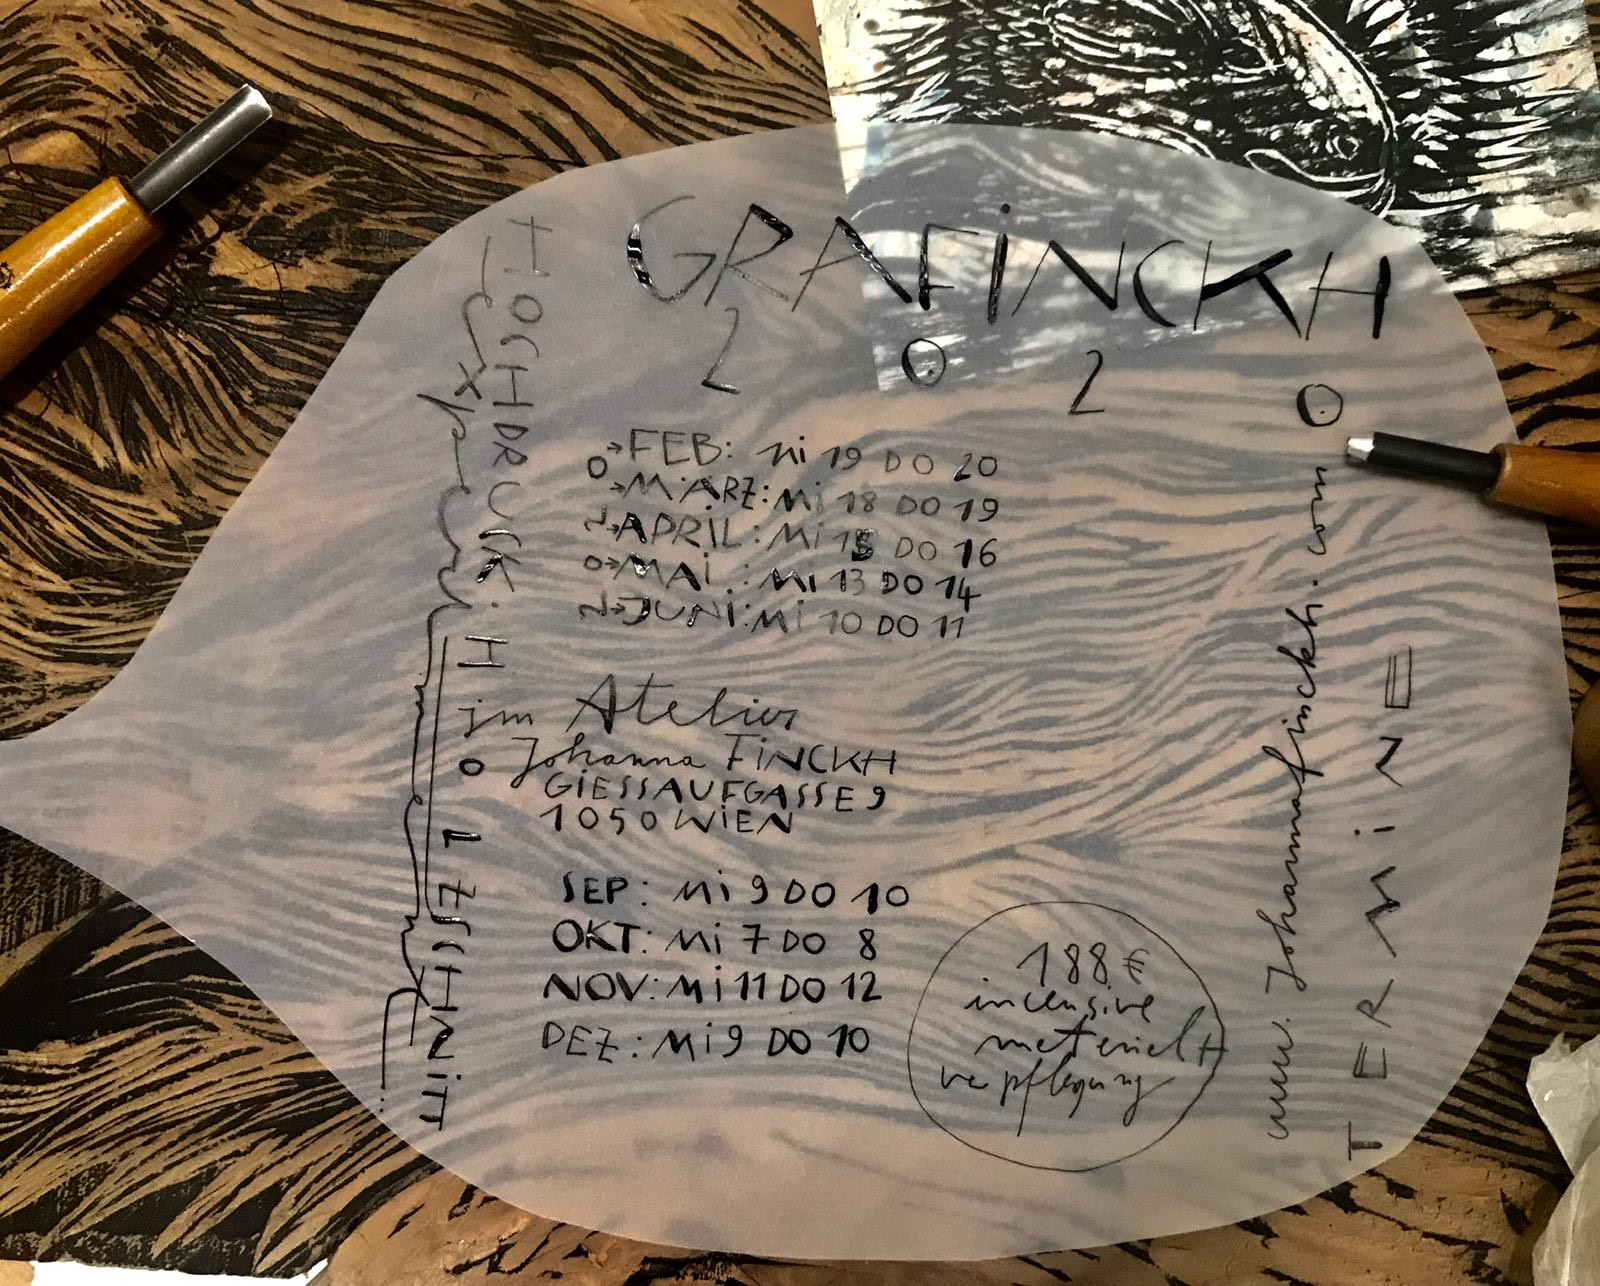 GRAFiNCKH
2 0 2 0
→FEB: Mi 19 DO 20
→MÄRZ: Mi 18 DO 19
→APRiL: Mi 15 DO 16
→MAi: Mi 13 DO 14
→JUNi: Mi 10 DO 11
im Atelier
Johanna FiNCKH
GiESSAUFGASSE 9
1050 WiEN
SEP: Mi 9 DO 10
OKT: Mi 7 DO 8
NOV: Mi 11 DO 12
DEZ: Mi 9 DO 10
188€
inclusive
material+
verpflegung
HOCHDRUCK:
HOLZSCHNiTT
www.johannafinckh.com
TERMiNE